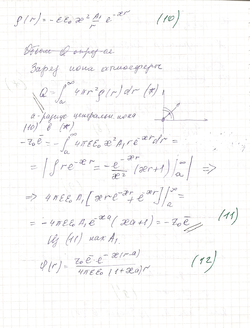 ρ(r) = -εε₀ æ² A₁/r e^{-ær} (10)
Заряд иона атмосферы
Q = ∫ₐ^∞ 4πr² ρ(r) dr (*)
a - радиус центрального иона
(10) в (*)
-z₀ē = -∫ₐ^∞ 4πεε₀ æ² A₁ r e^{-ær} dr =
= | ∫ r e^{-ær} = - e^{-ær}/æ² (ær+1) |ₐ^∞ | ⇒
⇒ 4πεε₀ A₁ [ær e^{-ær} + e^{-ær}] |ₐ^∞ =
= -4πεε₀ A₁ e^{-æa} (æa+1) = -z₀ē (11)
Из (11) нах A₁
φ(r) = z₀ē e^{-æ(r-a)} / 4πεε₀ (1+æa) r (12)